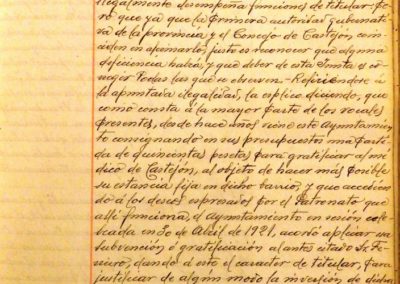 legalmente desempeña funciones de titular -pe-
ro que ya que la primera autoridad gubernati-
va de la provincia y el Concejo de Castejon coin-
ciden en afirmarlo, justo es reconocer que alguna
deficiencia habrá, y que deber de esta Junta es co-
rregir todas las que se observen.- Refiriéndose á
la apuntada ilegalidad, la explica diciendo, que
como consta á la mayor parte de los vocales
presentes, desde hace años viene este Ayuntamien-
to consignando en sus presupuestos una parti-
da de quinientas pesetas para gratificar al mé-
dico de Castejon, al objeto de hacer más posible
su estancia fija en dicho barrio, y que accedien-
do á los deseos expresados por el Patronato que
allí funciona, el Ayuntamiento en sesión cele-
brada en 30 de Abril de 1921, acordó aplicar esa
subvención ó gratificación al antes citado Sr. Fe-
rrero, dando á este el caracter de titular, para
justificar de algún modo la inversión de dicha